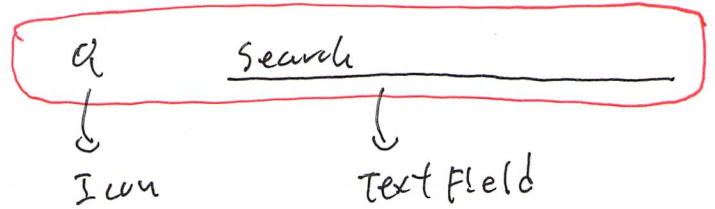 Search
Icon
Text Field